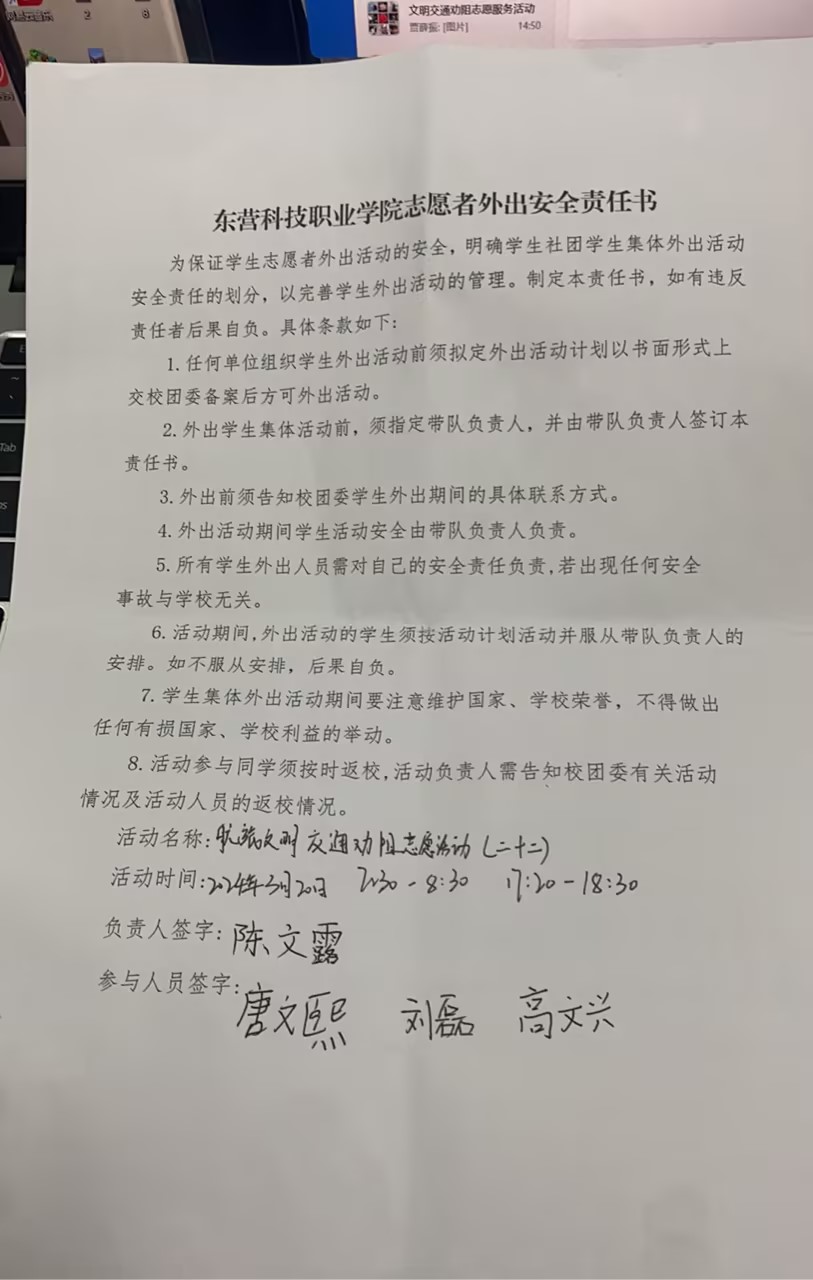 文明交通劝阻志愿服务活动
[图片]
14:50
2
8
Tab
东营科技职业学院志愿者外出安全责任书
为保证学生志愿者外出活动的安全，明确学生社团学生集体外出活动
安全责任的划分，以完善学生外出活动的管理。制定本责任书，如有违反
责任者后果自负。具体条款如下：
1.任何单位组织学生外出活动前须拟定外出活动计划以书面形式上
交校团委备案后方可外出活动。
2.外出学生集体活动前，须指定带队负责人，并由带队负责人签订本
责任书。
3.外出前须告知校团委学生外出期间的具体联系方式。
4.外出活动期间学生活动安全由带队负责人负责。
5.所有学生外出人员需对自己的安全责任负责,若出现任何安全
事故与学校无关。
6.活动期间,外出活动的学生须按活动计划活动并服从带队负责人的
安排。如不服从安排，后果自负。
7.学生集体外出活动期间要注意维护国家、学校荣誉，不得做出
任何有损国家、学校利益的举动。
8.活动参与同学须按时返校,活动负责人需告知校团委有关活动
情况及活动人员的返校情况。
活动名称:文明交通劝阻志愿活动(二十二)
活动时间:2024年3月20日 7:30-8:30 17:20-18:30
负责人签字:陈文露
参与人员签字:
唐文熙 刘磊 高文兴